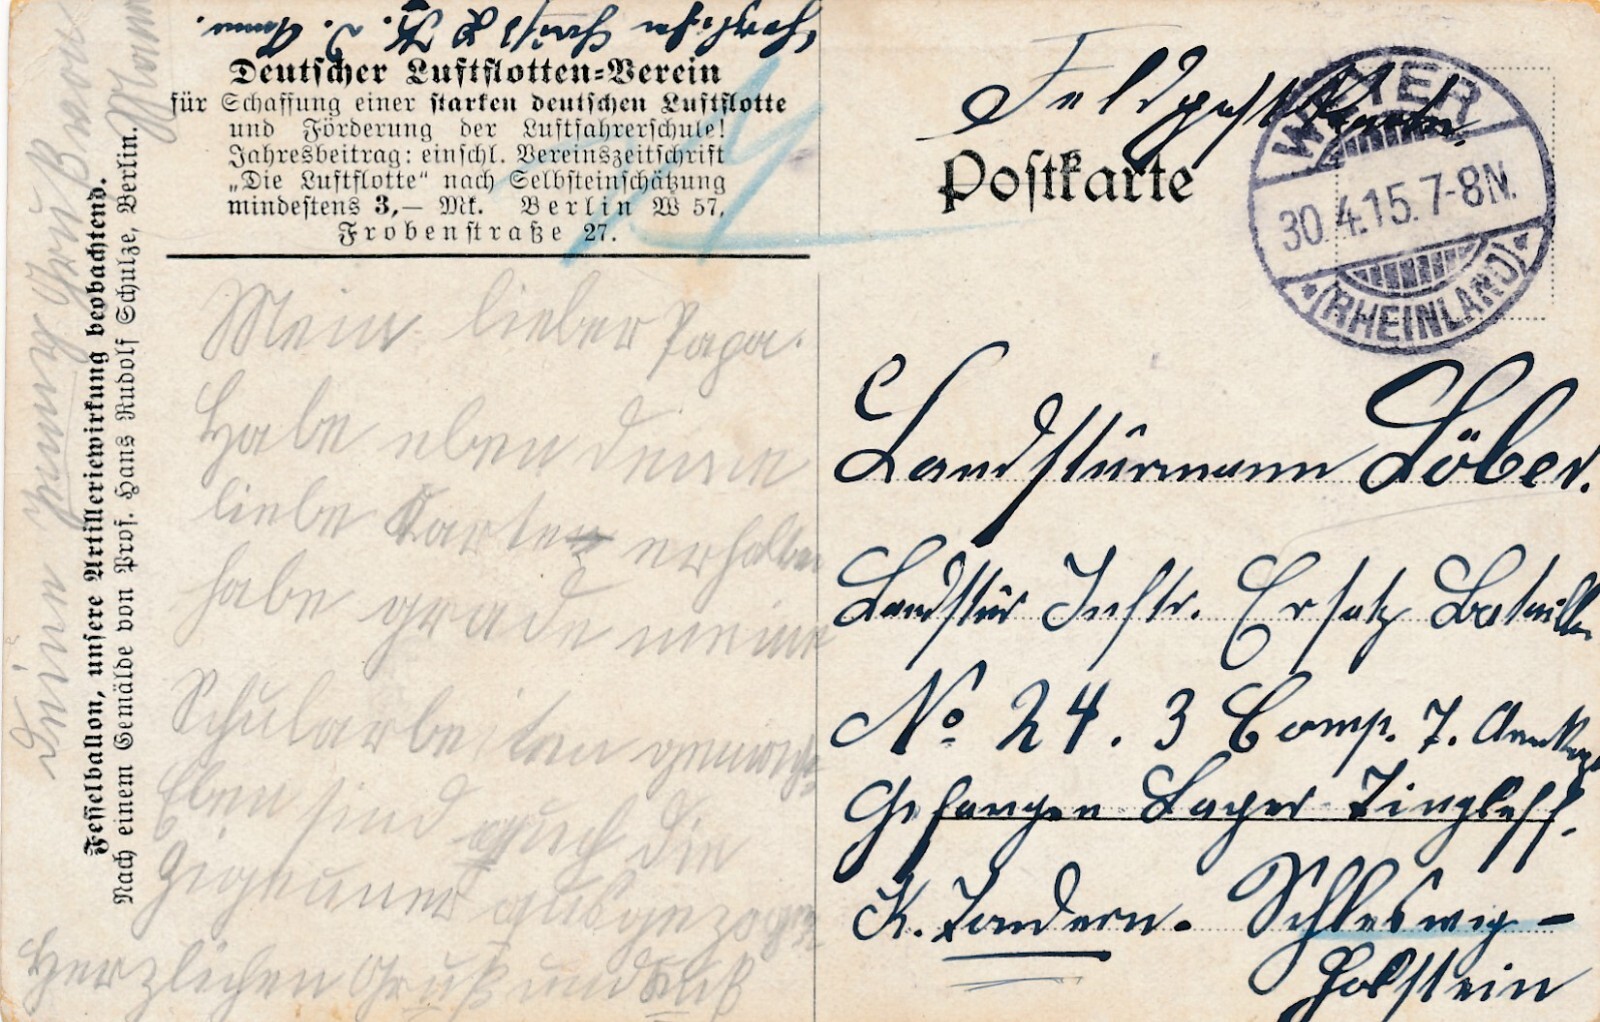 Deutscher Luftflotten-Verein
für Schaffung einer starken deutschen Luftflotte
und Förderung der Luftfahrerschule!
Jahresbeitrag: einschl. Vereinszeitschrift
„Die Luftflotte“ nach Selbsteinschätzung
mindestens 3,— Mk. Berlin W 57,
Frobenstraße 27.
Feldpostkarte
Postkarte
WETTER
30.4.15.7-8N.
*(RHEINLAND)*
Mein lieber Papa.
Habe eben deine
liebe Karte erhalten
habe grade meine
Schularbeiten gemacht
Eben sind auch die
Zigeuner ausgezogen
Herzlichen Gruß und Kuß
Landsturmmann Löber.
Landstur Inftr. Ersatz Bataillon
No 24. 3 Comp. 7.
Gefangen Lager Tingleff.
K. Tondern. Schleswig-
Holstein
Fesselballon, unsere Artilleriewirkung beobachtend.
Nach einem Gemälde von Prof. Hans Rudolf Schulze, Berlin.